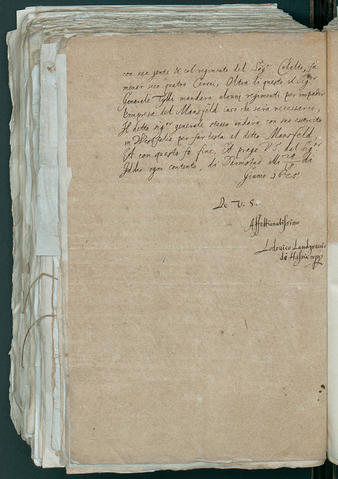 con sua gente et col regimento del Sigr Colalto, fa
menar seco quatro Canoni, Oltra di questo il Sigr
Generale Tylli mandara alcuni regimenti per impedir
l'impresa del Mansfeld caso che sara necessario,
Il detto sigr generale stesso andara con suo exercito
in Westfalia per far testa al detto Mansfeld,
Et con questo fo fine, Et prego V.S. del Sigr
Iddio ogni contento, di Darmstat alli da
Genaro 1625
De V. S.
Affettionatissimo
Lodovico Landgravio
di Hassia